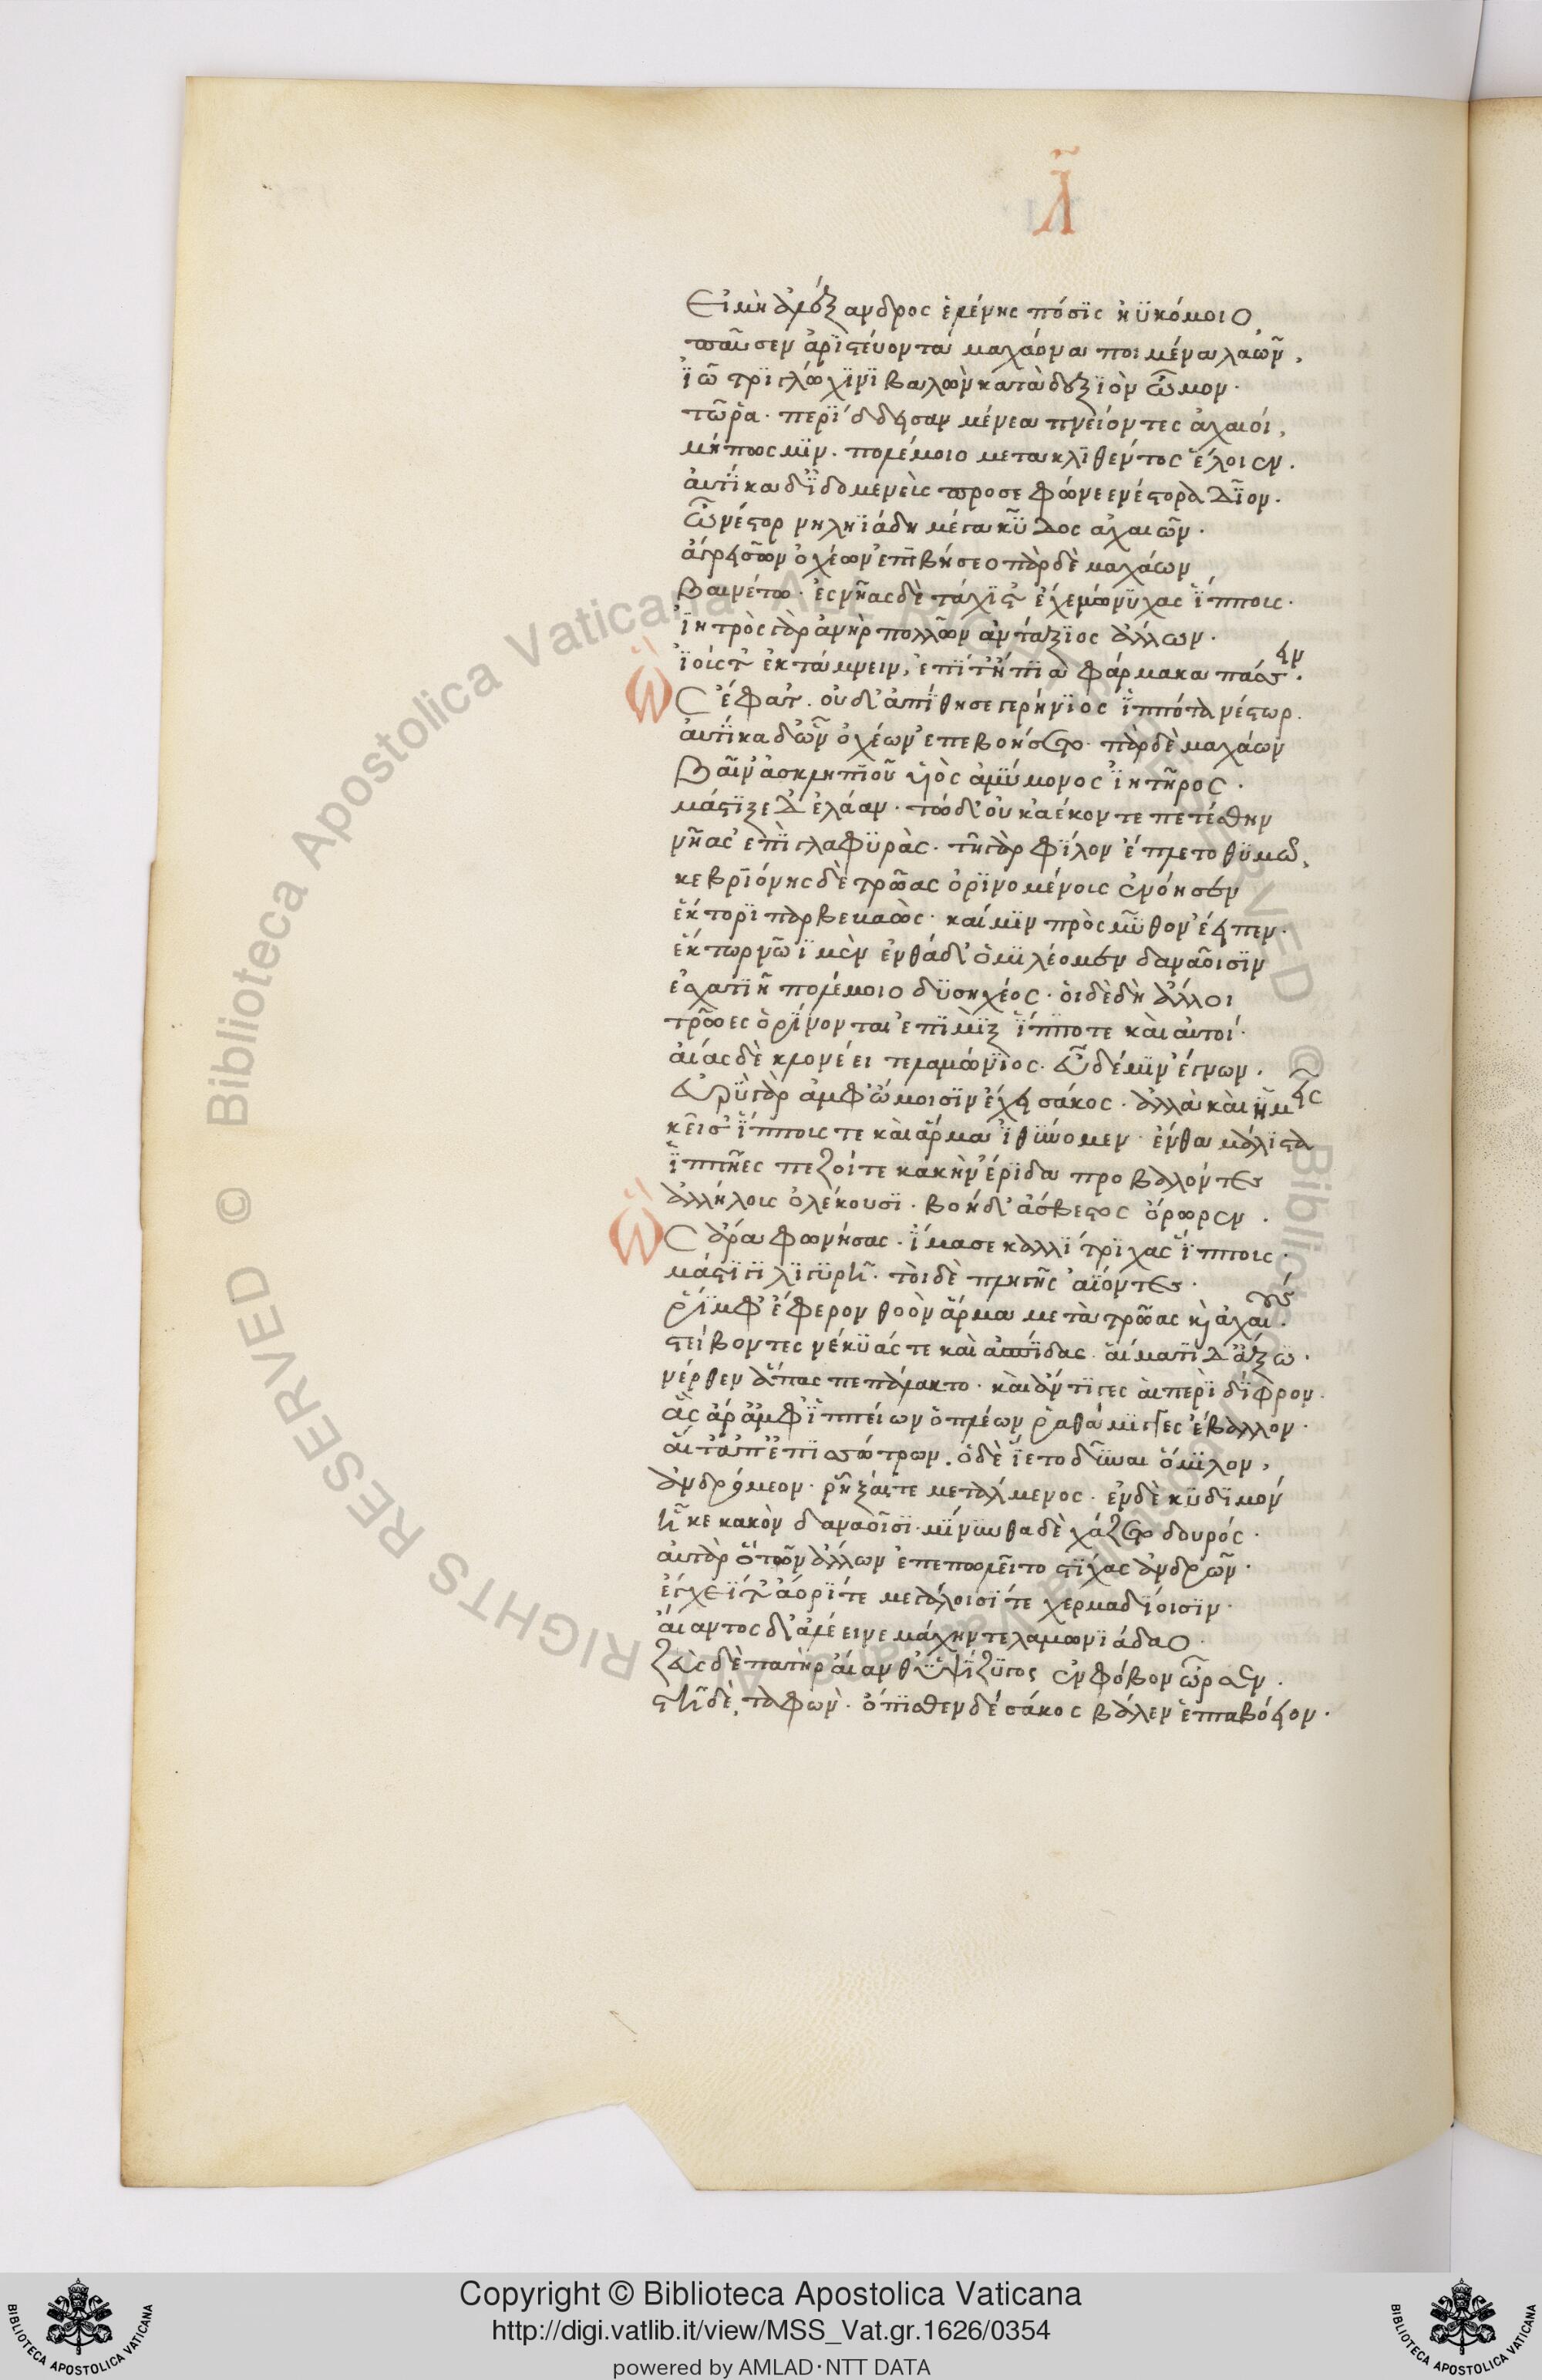 Λ
Εἰ μὴ ἀλέξανδρος ἑλένης πόσϊς ἠϋκόμοιο
παῦσεν ἀρϊστεύοντα μαχάονα ποιμένα λαῶν,
ἰῶ τρϊγλώχϊνϊ βαλὼν κατὰ δεξϊὸν ὦμον·
τῶ ῥα· περΐδδεισαν μένεα πνείοντες ἀχαιοί,
μήπως μϊν· πολέμοιο μετακλϊθέντος ἕλοιεν.
ἀυτΐκα δ' ϊδομενεὺς προσεφώνεε νέστορα δῖον·
ὦ νέστορ νηληϊάδη μέγα κῦδος ἀχαιῶν·
ἄγρει σῶν ὀχέων ἐπϊβήσεο πὰρ δὲ μαχάων
βαινέτω· ἐς νῆας δὲ τάχϊστ' ἔχε μώνϋχας ἵππους·
ἰητρὸς γὰρ ἀνὴρ πολλῶν ἀντάξϊος ἄλλων·
ἰούς τ' ἐκτάμνειν, ἐπΐ τ' ἤπϊα φάρμακα πάσσειν.
Ὣς ἔφατ'. οὐδ' ἀπΐθησε γερήνϊος ἱππότα νέστωρ.
ἀυτΐκα δ' ὧν ὀχέων ἐπεβήσετο· πὰρ δὲ μαχάων
βαῖν' ἀσκληπϊοῦ ὑϊὸς ἀμύμονος ἰητῆρος·
μάστϊξε δ' ἐλάαν· τὼ δ' οὐκ ἀέκοντε πετέσθην
νῆας ἐπϊ γλαφϋράς· τῆ γὰρ φΐλον ἔπλετο θϋμῶ,
κεβρϊόνης δὲ τρῶας ὀρϊνομένους ἐνόησεν
ἕκτορϊ παρβεβαώς· καί μϊν πρὸς μῦθον ἔειπεν·
ἕκτωρ νῶϊ μὲν ἐνθάδ' ὁμϊλέομεν δαναοῖσϊν
ἐσχατϊῆ πολέμοιο δϋσηχέος· ὁι δὲ δὴ ἄλλοι
τρῶες ὀρΐνονται ἐπϊμΐξ ἵπποι τε καὶ αὐτοί·
ἄιας δὲ κλονέει τελαμώνϊος· εὖ δέ μϊν ἔγνων.
ἐυρὺ γὰρ ἀμφ' ὤμοισϊν ἔχει σάκος· ἀλλὰ καὶ ἡμεῖς
κεῖσ' ἵππους τε καὶ ἅρμα ἰθύνομεν· ἔνθα μάλϊστα
ἱππῆες πεζοί τε κακὴν ἔρϊδα προβαλόντες
ἀλλήλους ὀλέκουσϊ· βοὴ δ' ἄσβεστος ὄρωρεν·
Ὣς ἄρα φωνήσας· ἵμασε καλλΐτρϊχας ἵππους·
μάστϊγϊ λϊγϋρῆ· τὸι δὲ πληγῆς ἀΐοντες·
ῥΐμφ' ἔφερον θοὸν ἅρμα μετὰ τρῶας κὶ ἀχαιούς.
στείβοντες νέκϋάς τε καὶ ἀσπΐδας· ἅιματϊ δ' ἄξω·
νέρθεν ἅπας πεπάλακτο· καὶ ἄντϋγες ἁι περὶ δΐφρον·
ἃς ἄρ ἀμφ' ἱππείων ὁπλέων ῥαθάμϊγγες ἔβαλλον·
ἅι τ' ἀπ' ἐπϊσσώτρων. ὁ δὲ ἵετο δῦναι ὅμϊλον,
ἀνδρόμεον· ῥῆξαί τε μετάλμενος· ἐν δὲ κϋδϊμὸν
ἧκε κακὸν δαναοῖσϊ· μΐνϋνθα δὲ χάζετο δουρός·
αὐτὰρ ὃ τῶν ἄλλων ἐπεπωλεῖτο στΐχας ἀνδρῶν·
ἔγχεΐ τ' ἄορΐ τε μεγάλοισΐ τε χερμαδΐοισϊν·
ἄιαντος δ' ἀλέεινε μάχην τελαμωνϊάδαο·
Ζεὺς δὲ πατὴρ ἄιανθ' ὑψΐζϋγος ἐν φόβον ὦρσεν·
στῆ δὲ ταφών· ὄπϊσθεν δὲ σάκος βάλεν ἑπταβόειον·
Copyright © Biblioteca Apostolica Vaticana
http://digi.vatlib.it/view/MSS_Vat.gr.1626/0354
powered by AMLAD·NTT DATA
BIBLIOTECA APOSTOLICA VATICANA
BIBLIOTECA APOSTOLICA VATICANA
© Biblioteca Apostolica Vaticana ALL RIGHTS RESERVED
© Biblioteca Apostolica Vaticana ALL RIGHTS RESERVED